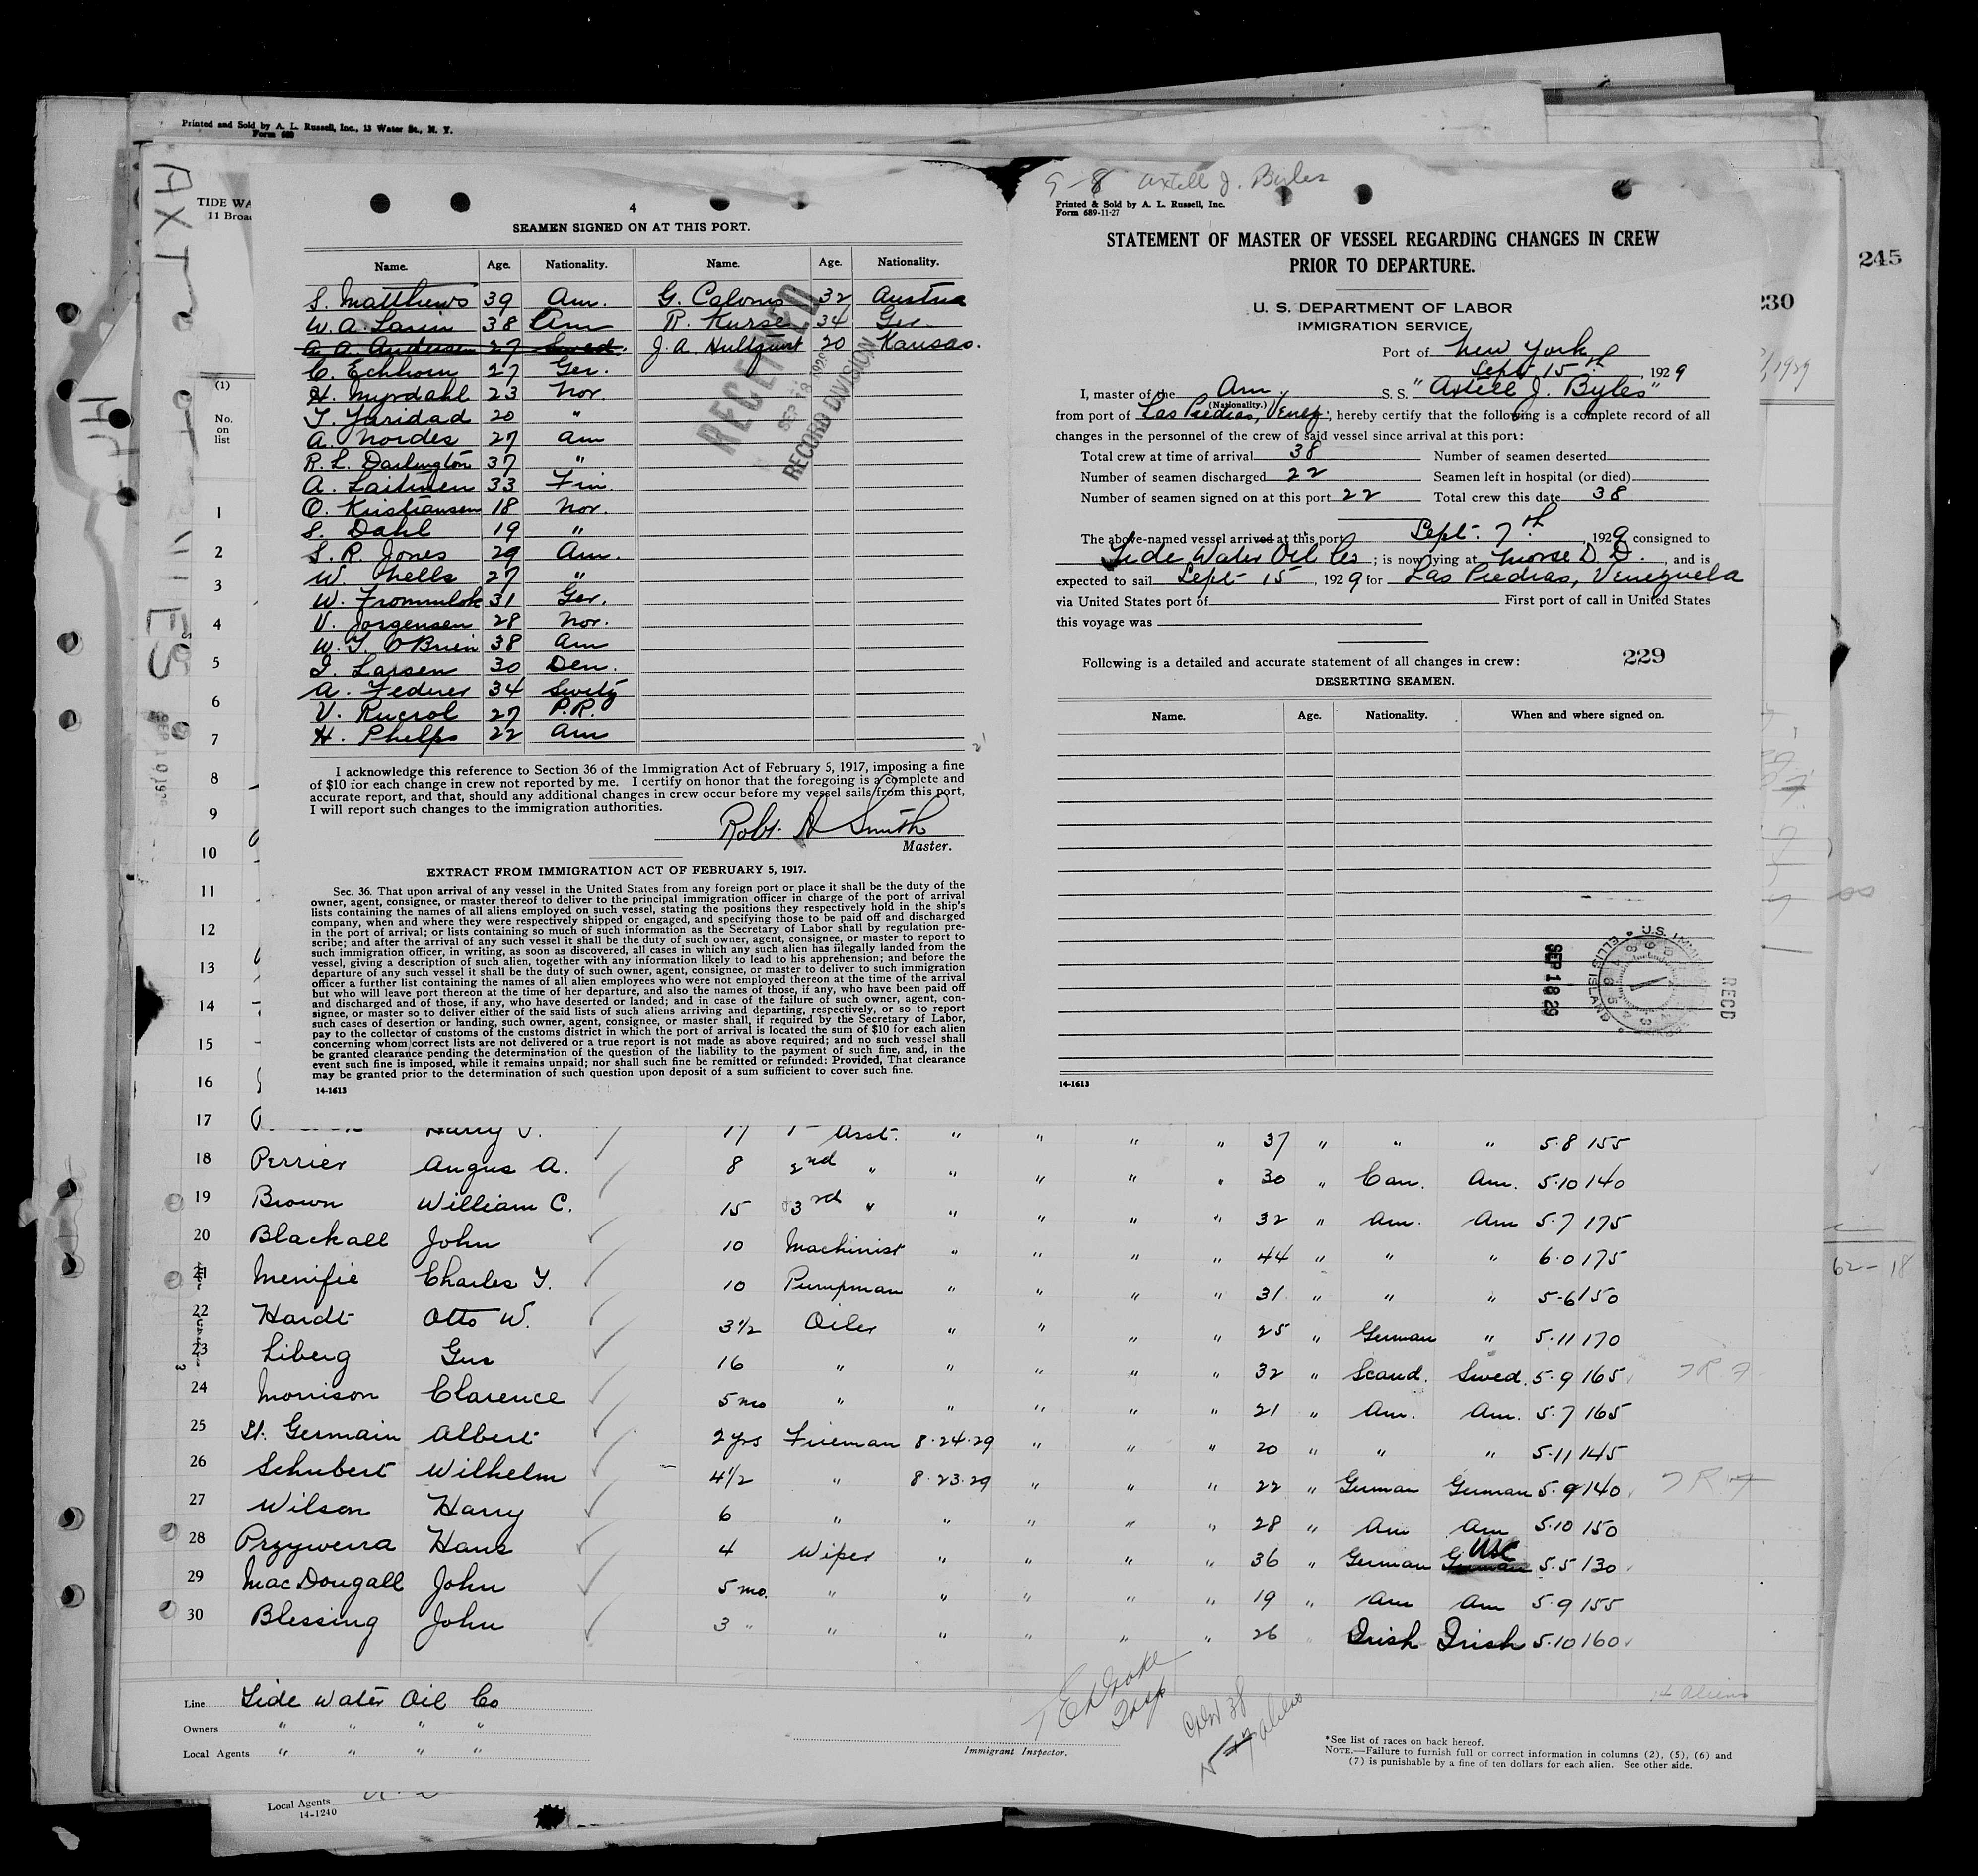 Printed and Sold by A. L. Russell, Inc., 13 Water St., N. Y.
Form 689
TIDE WA
11 Broa
245
230
(1)
No. on list
4
SEAMEN SIGNED ON AT THIS PORT.
Name. Age. Nationality. Name. Age. Nationality.
S. Matthews 39 Am. G. Calonis 32 Austria
W. A. Lasin 38 Am R. Kurse 34 Ger
A. A. Andersen 27 Swed. J. A. Hullquist 20 Kansas.
C. Echhorn 27 Ger.
H. Myrdahl 23 Nor.
T. Jaridad 20 "
A. Nordes 27 Am
R. L. Darlington 37 "
A. Laitinen 33 Fin.
O. Kristiansen 18 Nor.
S. Dahl 19 "
S. R. Jones 29 Am.
W. Nells 27 "
W. Frommlok 31 Ger.
V. Jorgensen 28 Nor.
W. J. O'Brien 38 Am
I. Larsen 30 Den.
A. Federer 34 Switz
V. Rucrol 27 P.R.
H. Phelps 22 Am
RECEIVED
SEP 18 1929
RECORD DIVISION
I acknowledge this reference to Section 36 of the Immigration Act of February 5, 1917, imposing a fine
of $10 for each change in crew not reported by me. I certify on honor that the foregoing is a complete and
accurate report, and that, should any additional changes in crew occur before my vessel sails from this port,
I will report such changes to the immigration authorities.
Robt. A Smith
Master.
EXTRACT FROM IMMIGRATION ACT OF FEBRUARY 5, 1917.
Sec. 36. That upon arrival of any vessel in the United States from any foreign port or place it shall be the duty of the
owner, agent, consignee, or master thereof to deliver to the principal immigration officer in charge of the port of arrival
lists containing the names of all aliens employed on such vessel, stating the positions they respectively hold in the ship's
company, when and where they were respectively shipped or engaged, and specifying those to be paid off and discharged
in the port of arrival; or lists containing so much of such information as the Secretary of Labor shall by regulation pre-
scribe; and after the arrival of any such vessel it shall be the duty of such owner, agent, consignee, or master to report to
such immigration officer, in writing, as soon as discovered, all cases in which any such alien has illegally landed from the
vessel, giving a description of such alien, together with any information likely to lead to his apprehension; and before the
departure of any such vessel it shall be the duty of such owner, agent, consignee, or master to deliver to such immigration
officer a further list containing the names of all alien employees who were not employed thereon at the time of the arrival
but who will leave port thereon at the time of her departure, and also the names of those, if any, who have been paid off
and discharged and of those, if any, who have deserted or landed; and in case of the failure of such owner, agent, con-
signee, or master so to deliver either of the said lists of such aliens arriving and departing, respectively, or so to report
such cases of desertion or landing, such owner, agent, consignee, or master shall, if required by the Secretary of Labor,
pay to the collector of customs of the customs district in which the port of arrival is located the sum of $10 for each alien
concerning whom correct lists are not delivered or a true report is not made as above required; and no such vessel shall
be granted clearance pending the determination of the question of the liability to the payment of such fine, and, in the
event such fine is imposed, while it remains unpaid; nor shall such fine be remitted or refunded: Provided, That clearance
may be granted prior to the determination of such question upon deposit of a sum sufficient to cover such fine.
14-1613
9-8 Axtell J. Byles
Printed & Sold by A. L. Russell, Inc.
Form 689-11-27
STATEMENT OF MASTER OF VESSEL REGARDING CHANGES IN CREW
PRIOR TO DEPARTURE.
U. S. DEPARTMENT OF LABOR
IMMIGRATION SERVICE
Port of New York
Sept 15th, 1929
I, master of the Am. S. S. "Axtell J. Byles"
(Nationality.)
from port of Las Piedras, Venez., hereby certify that the following is a complete record of all
changes in the personnel of the crew of said vessel since arrival at this port:
Total crew at time of arrival 38 Number of seamen deserted
Number of seamen discharged 22 Seamen left in hospital (or died)
Number of seamen signed on at this port 22 Total crew this date 38
The above-named vessel arrived at this port Sept. 7th, 1929 consigned to
Tide Water Oil Co; is now lying at Morse D. D., and is
expected to sail Sept 15, 1929 for Las Piedras, Venezuela
via United States port of First port of call in United States
this voyage was
Following is a detailed and accurate statement of all changes in crew: 229
DESERTING SEAMEN.
Name. Age. Nationality. When and where signed on.
SEP 18 29
RECD
14-1613
1
2
3
4
5
6
7
8
9
10
11
12
13
14
15
16
17 Harry J. 17 1st Asst. " " " " 37 " " " 5-8 155
18 Perrier Angus A. 8 2nd " " " " " 30 " Can. Am. 5-10 140
19 Brown William C. 15 3rd " " " " " 32 " Am. Am 5-7 175
20 Blackall John 10 Machinist " " " " 44 " " " 6-0 175
21 Menifie Charles T. 10 Pumpman " " " " 31 " " " 5-6 150
22 Hardt Otto W. 3 1/2 Oiler " " " " 25 " German " 5-11 170
23 Liberg Gus 16 " " " " " 32 " Scand. Swed. 5-9 165
24 Morrison Clarence 5 mo " " " " " 21 " Am. Am. 5-7 165
25 St. Germain Albert 2 yrs Fireman 8-24-29 " " " 20 " " " 5-11 145
26 Schubert Wilhelm 4 1/2 " 8-23-29 " " " 22 " German German 5-9 140
27 Wilson Harry 6 " " " " " 28 " Am Am 5-10 150
28 Przywerra Hans 4 Wiper " " " " 36 " German German USC 5-5 130
29 MacDougall John 5 mo. " " " " " 19 " Am Am 5-9 155
30 Blessing John 3 " " " " " " 26 " Irish Irish 5-10 160
62-18
14 aliens
Line Tide Water Oil Co
Owners " " " "
Local Agents " " " "
Immigrant Inspector.
Crew 38
*See list of races on back hereof.
NOTE.—Failure to furnish full or correct information in columns (2), (5), (6) and
(7) is punishable by a fine of ten dollars for each alien. See other side.
Local Agents
14-1240